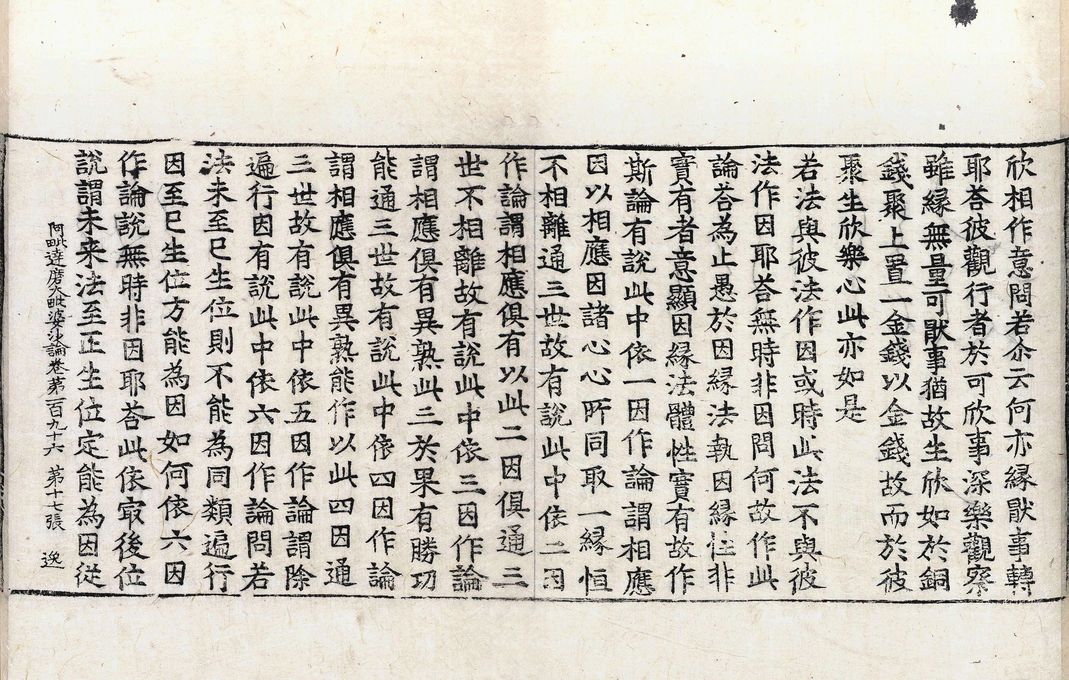 欣相作意問若尒云何亦縁猒事轉
耶荅彼觀行者於可欣事深樂觀察
雖縁無量可猒事猶故生欣如於銅
錢聚上置一金錢以金錢故而於彼
聚生欣樂心此亦如是
若法與彼法作因或時此法不與彼
法作因耶荅無時非因問何故作此
論荅為止愚於因縁法執因縁性非
實有者意顯因縁法體性實有故作
斯論有說此中依一因作論謂相應
因以相應因諸心心所同取一縁恒
不相離通三世故有說此中依二因
作論謂相應俱有以此二因俱通三
世不相離故有說此中依三因作論
謂相應俱有異熟此三於果有勝功
能通三世故有說此中依四因作論
謂相應俱有異熟能作以此四因通
三世故有說此中依五因作論謂除
遍行因有說此中依六因作論問若
法未至已生位則不能為同類遍行
因至已生位方能為因如何依六因
作論說無時非因耶荅此依㝡後位
說謂未来法至正生位定能為因從
阿毗達磨大毗婆沙論卷第一百九十六 第十七張 逸